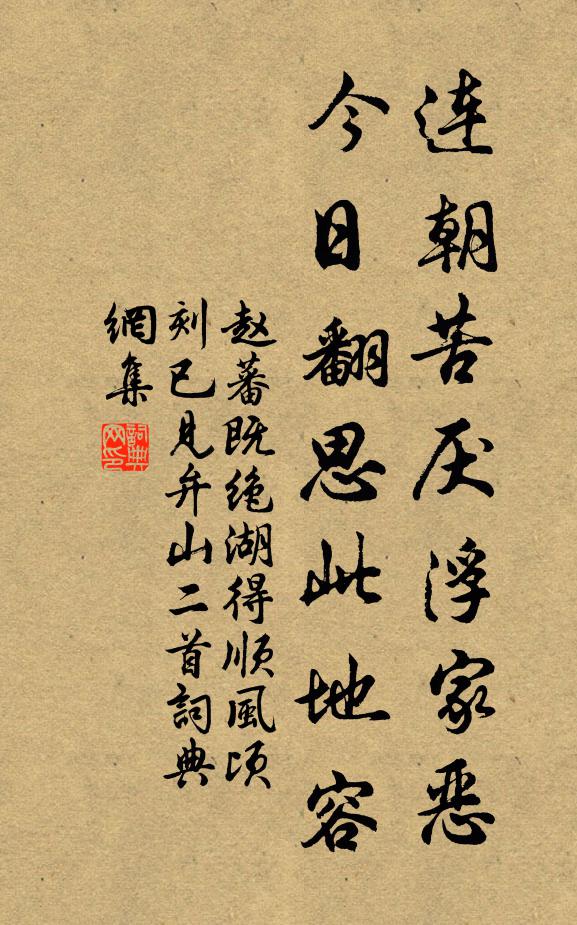 連朝苦厌浮家恶
今日翻思此地容
赵蕃既绝湖得順風頃
刻已見弁山二首詞典
網集
詞典网印